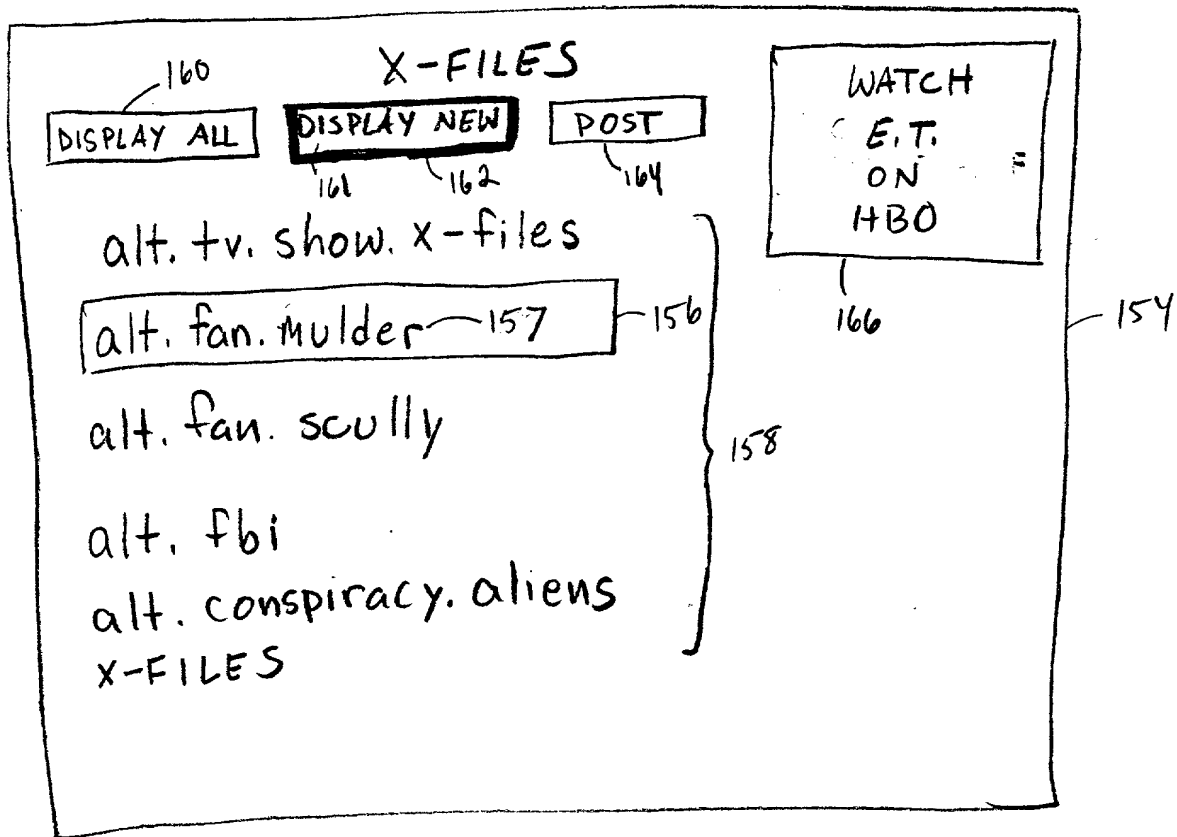 X-FILES
160
DISPLAY ALL
DISPLAY NEW
POST
161
162
164
WATCH
E.T.
ON
HBO
166
154
alt. tv. show. x-files
alt. fan. mulder 157
156
alt. fan. scully
158
alt. fbi
alt. conspiracy. aliens
X-FILES